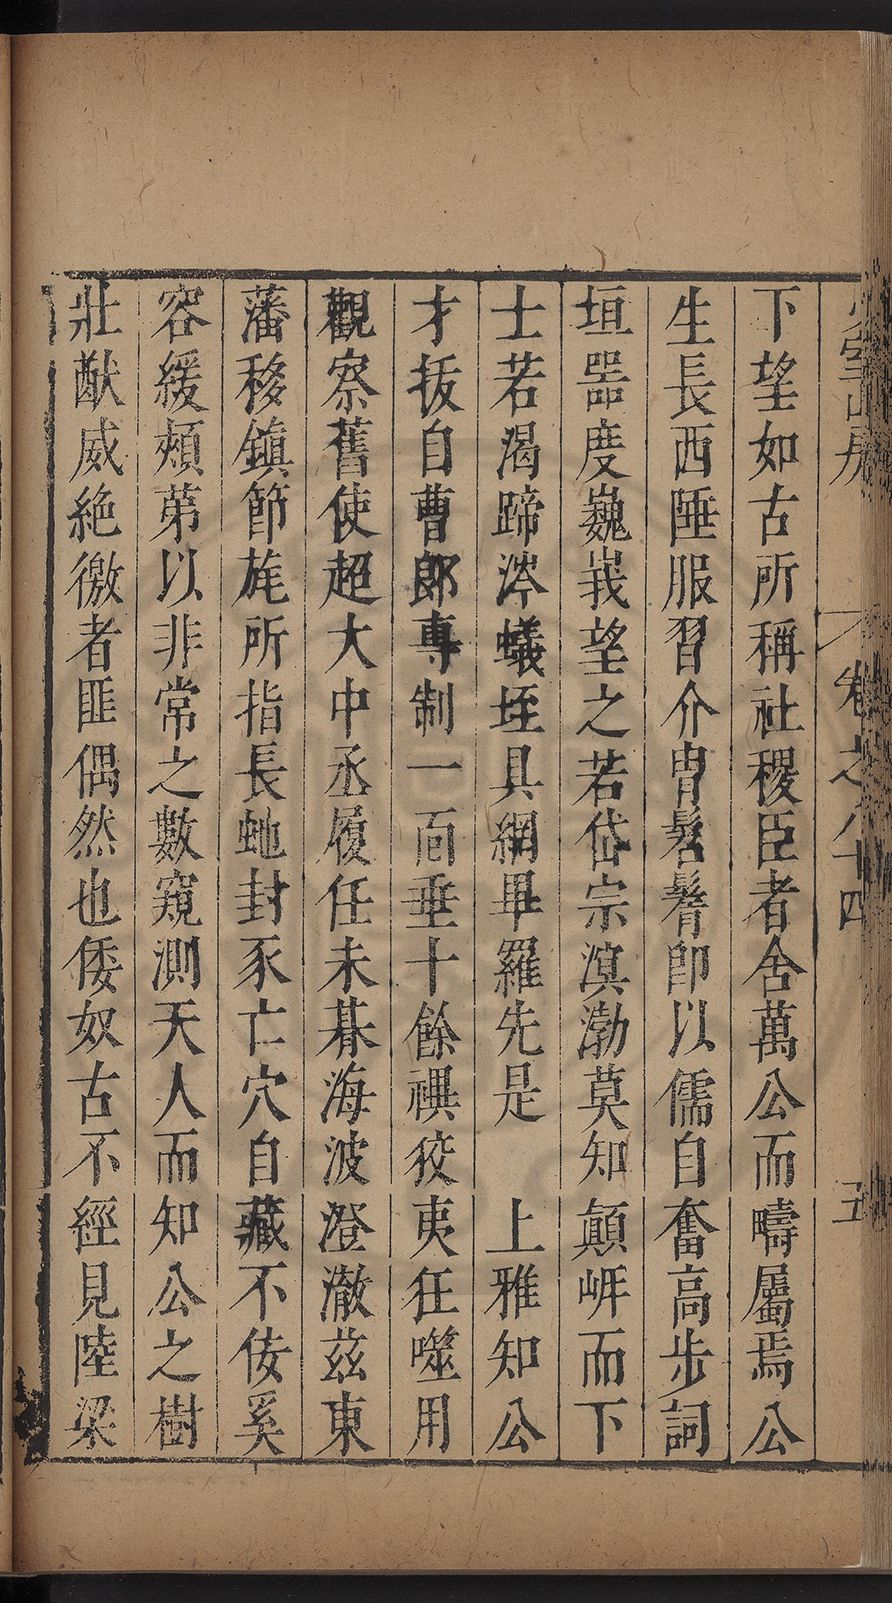 少室山房　卷之八十四　五
下望如古所稱社稷臣者舍萬公而疇屬焉公
生長西陲服習介冑髫髾即以儒自奮高步詞
垣器度巍峩望之若岱宗溟渤莫知顛岼而下
士若渴蹄涔蟻垤具網畢羅先是　上雅知公
才拔自曹郎專制一面垂十餘禩狡夷狂噬用
觀察舊使超大中丞履任未朞海波澄澈茲東
藩移鎮節旄所指長虵封豕亡穴自藏不佞奚
容緩頰第以非常之數窺測天人而知公之樹
壯猷威絶徼者匪偶然也倭奴古不經見陸梁